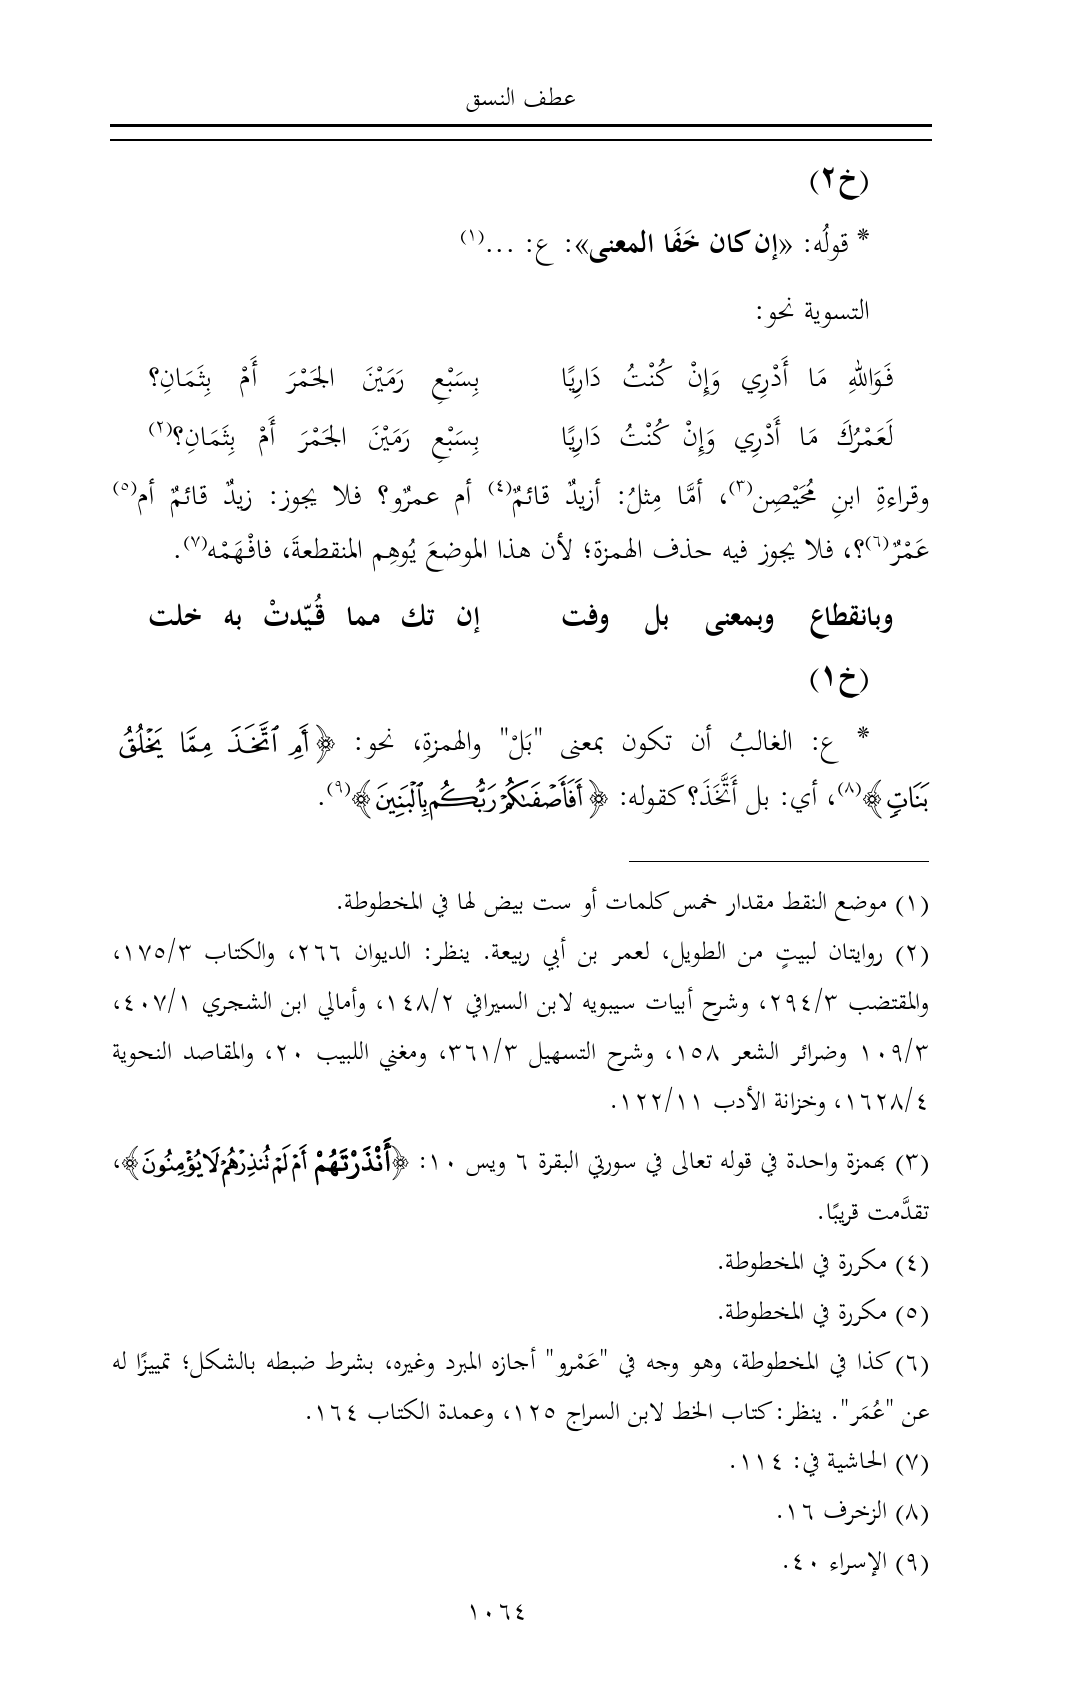 عطف النسق
(خ٢)
* قولُه: «إن كان خَفَا المعنى»: ع: ...(١)
التسوية نحو:
فَوَاللهِ مَا أَدْرِي وَإِنْ كُنْتُ دَارِيًا بِسَبْعٍ رَمَيْنَ الجَمْرَ أَمْ بِثَمَانِ؟
لَعَمْرُكَ مَا أَدْرِي وَإِنْ كُنْتُ دَارِيًا بِسَبْعٍ رَمَيْنَ الجَمْرَ أَمْ بِثَمَانِ؟(٢)
وقراءةِ ابنِ مُحَيْصِن(٣)، أمَّا مِثلُ: أزيدٌ قائمٌ(٤) أم عمرٌو؟ فلا يجوز: زيدٌ قائمٌ أم(٥)
عَمْرٌ(٦)؟، فلا يجوز فيه حذف الهمزة؛ لأن هذا الموضعَ يُوهِم المنقطعةَ، فافْهَمْه(٧).
وبانقطاع وبمعنى بل وفت إن تك مما قُيّدتْ به خلت
(خ١)
* ع: الغالبُ أن تكون بمعنى "بَلْ" والهمزةِ، نحو: ﴿أَمِ ٱتَّخَذَ مِمَّا يَخْلُقُ
بَنَاتٍ﴾(٨)، أي: بل أَتَّخَذَ؟ كقوله: ﴿أَفَأَصْفَىٰكُمْ رَبُّكُم بِٱلْبَنِينَ﴾(٩).
(١) موضع النقط مقدار خمس كلمات أو ست بيض لها في المخطوطة.
(٢) روايتان لبيتٍ من الطويل، لعمر بن أبي ربيعة. ينظر: الديوان ٢٦٦، والكتاب ١٧٥/٣،
والمقتضب ٢٩٤/٣، وشرح أبيات سيبويه لابن السيرافي ١٤٨/٢، وأمالي ابن الشجري ٤٠٧/١،
١٠٩/٣ وضرائر الشعر ١٥٨، وشرح التسهيل ٣٦١/٣، ومغني اللبيب ٢٠، والمقاصد النحوية
١٦٢٨/٤، وخزانة الأدب ١٢٢/١١.
(٣) بهمزة واحدة في قوله تعالى في سورتي البقرة ٦ ويس ١٠: ﴿أَنْذَرْتَهُمْ أَمْ لَمْ تُنذِرْهُمْ لَا يُؤْمِنُونَ﴾،
تقدَّمت قريبًا.
(٤) مكررة في المخطوطة.
(٥) مكررة في المخطوطة.
(٦) كذا في المخطوطة، وهو وجه في "عَمْرو" أجازه المبرد وغيره، بشرط ضبطه بالشكل؛ تمييزًا له
عن "عُمَر". ينظر: كتاب الخط لابن السراج ١٢٥، وعمدة الكتاب ١٦٤.
(٧) الحاشية في: ١١٤.
(٨) الزخرف ١٦.
(٩) الإسراء ٤٠.
١٠٦٤